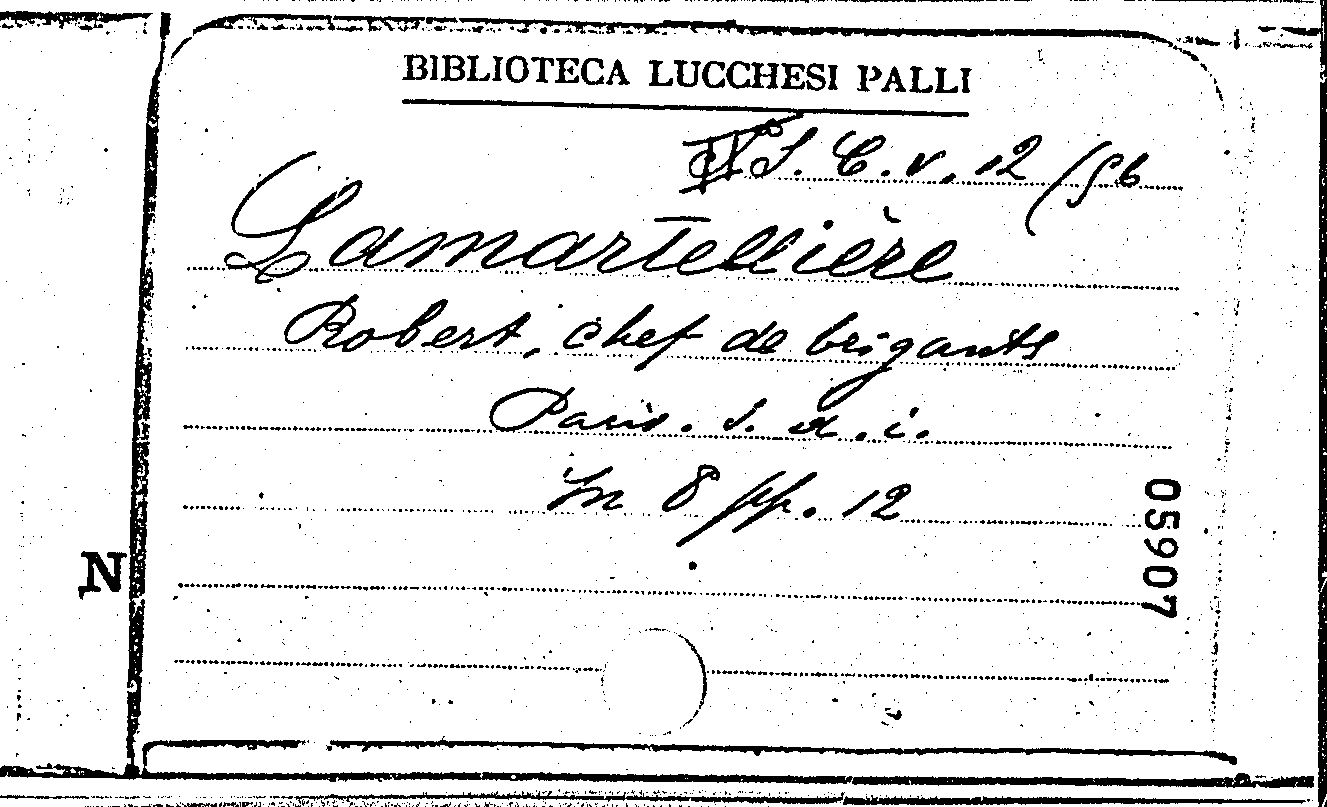 BIBLIOTECA LUCCHESI PALLI
S. C. v. 12 (56
Lamartellière
Robert, chef de brigants
Paris. s. d. i.
In 8 pp. 12
05907
N